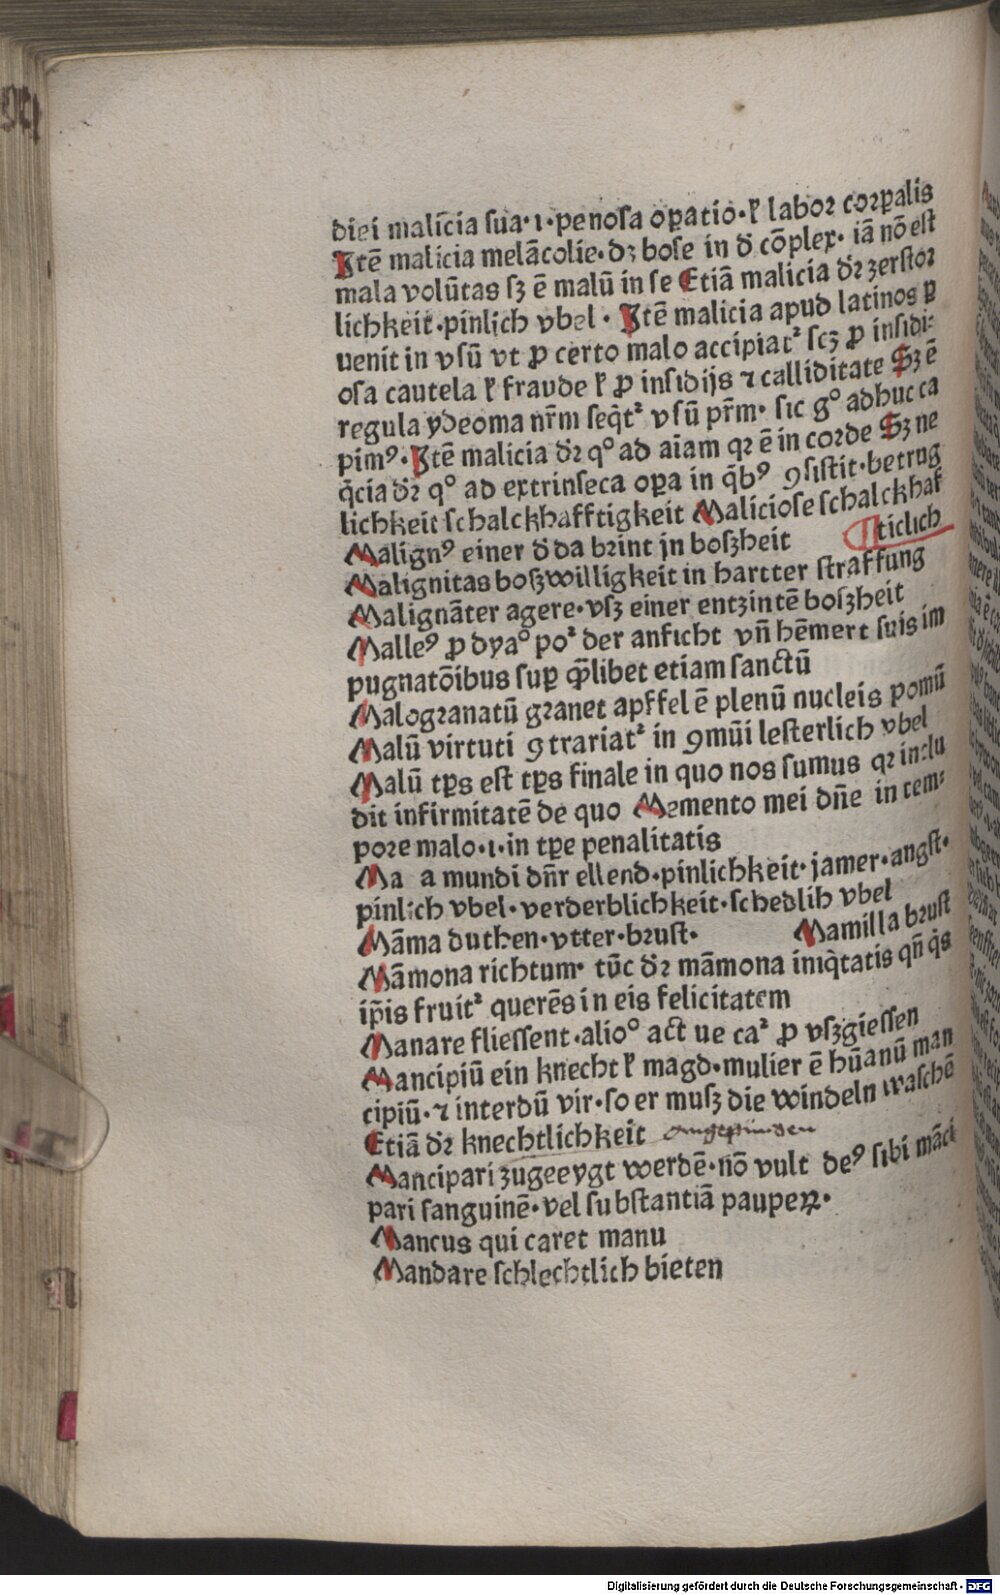 diei malicia sua·i·penosa oꝑatio·ł labor corꝑalis
Itē malicia melācolie·dz bose in d̄ cōplex· iā nō est
mala volūtas sz ē malū in se Etiā malicia dr̄ zerstor
lichkeit·pinlich vbel· Itē malicia apud latinos ꝑ
uenit in vsū vt ꝓ certo malo accipiatᷣ scz ꝓ insidi-
osa cautela ł fraude ł ꝓ insidijs ⁊ calliditate Sz ē
regula ydeoma nr̄m seq̄tᷣ vsū pr̄m· sic gº adhuc ca
pimꝰ· Itē malicia dr̄ qº ad aīam qꝛ ē in corde Sz ne
q̄cia dr̄ qº ad extrinseca oꝑa in q̄bꝰ ꝯsistit·betrug
lichkeit schalckhafftigkeit Maliciose schalckhaf
Malignꝰ einer d̄ da brint jn boszheit ¶ticlich
Malignitas boszwilligkeit in hartter straffung
Malignāter agere·vsz einer entzintē boszheit
Malleꝰ ꝓ dyaº poᷣ der anficht vn̄ hēmert suis im
pugnatōibus suꝑ q̄libet etiam sanctū
Malogranatū granet apffel ē plenū nucleis pomū
Malū virtuti ꝯtrariatᷣ in ꝯmūi lesterlich vbel
Malū tꝑs est tꝑs finale in quo nos sumus qꝛ inclu
dit infirmitatē de quo Memento mei dn̄e in tem-
pore malo·i·in tꝑe penalitatis
Ma a mundi dn̄r ellend·pinlichkeit·jamer·angst·
pinlich vbel·verderblichkeit·schedlih vbel
Māma duthen·vtter·brust· Mamilla brust
Māmona richtum· tūc dr̄ māmona iniq̄tatis qn̄ q̄s
ip̄is fruitᷣ querēs in eis felicitatem
Manare fliessent·alioº act ue caᷣ ꝓ vszgiessen
Mancipiū ein knecht ł magd·mulier ē hūanū man
cipiū·⁊ interdū vir·so er musz die windeln waschē
Etiā dr̄ knechtlichkeit
Mancipari zugeeygt werdē·nō vult deꝰ sibi māci
pari sanguinē·vel substantiā pauperꝝ·
Mancus qui caret manu
Mandare schlechtlich bieten
Digitalisierung gefördert durch die Deutsche Forschungsgemeinschaft - DFG